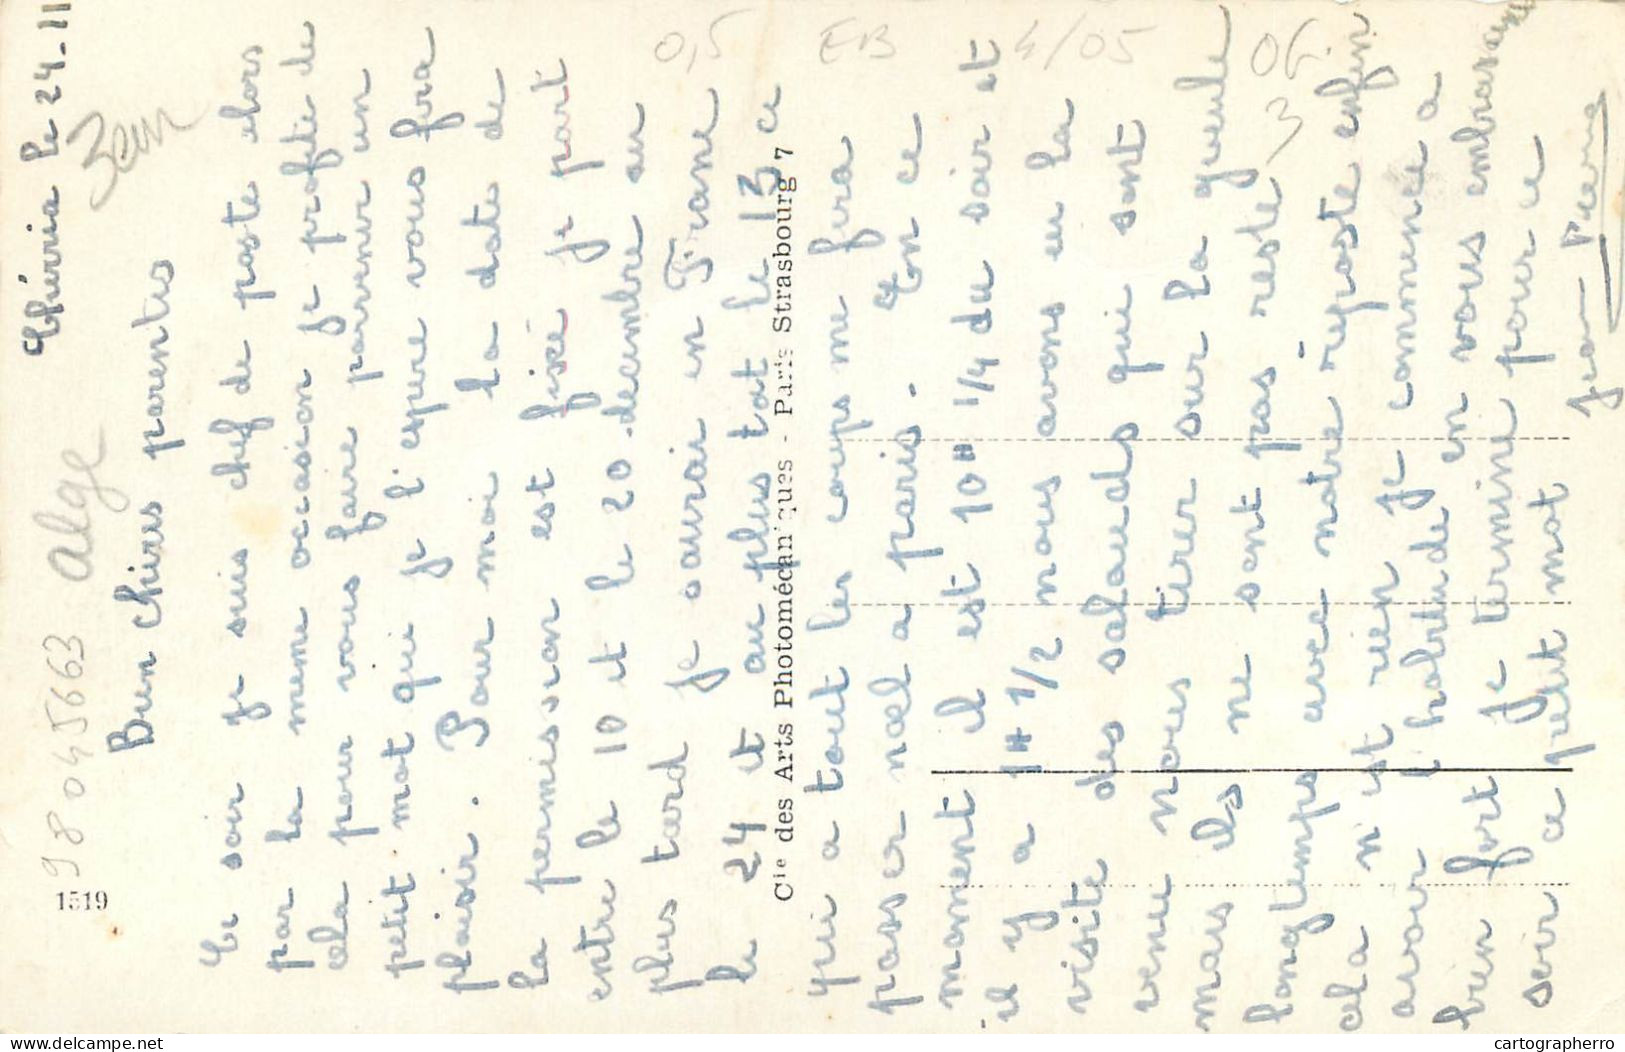 le 24-11
Bien chers parents
Ce soir je suis chef de poste alors
par la meme occasion je profite de
cela pour vous faire parvenir un
petit mot qui je l'espere vous fera
plaisir. Pour moi la date de
la permission est fixé je part
entre le 10 et le 20 decembre au
plus tard je saurai en France
le 24 et au plus tot le 13 ce
qui a tout les coups me fera
passer noel a paris. En ce
moment il est 10H 1/4 du soir et
il y a 1H 1/2 nous avons eu la
visite des salauds qui sont
venu nous tirer sur la gueule
mais ils ne sont pas resté
longtemps avec notre riposte enfin
cela n'est rien je commence a
avoir l'habitude en vous embrassant
bien fort je termine pour ce
soir ce petit mot
Jean-Pierre
Jean
98045663 alge
1519
Cie des Arts Photomécaniques - Paris Strasbourg 7
0,5
EB
4/05
06
3
cartographerro